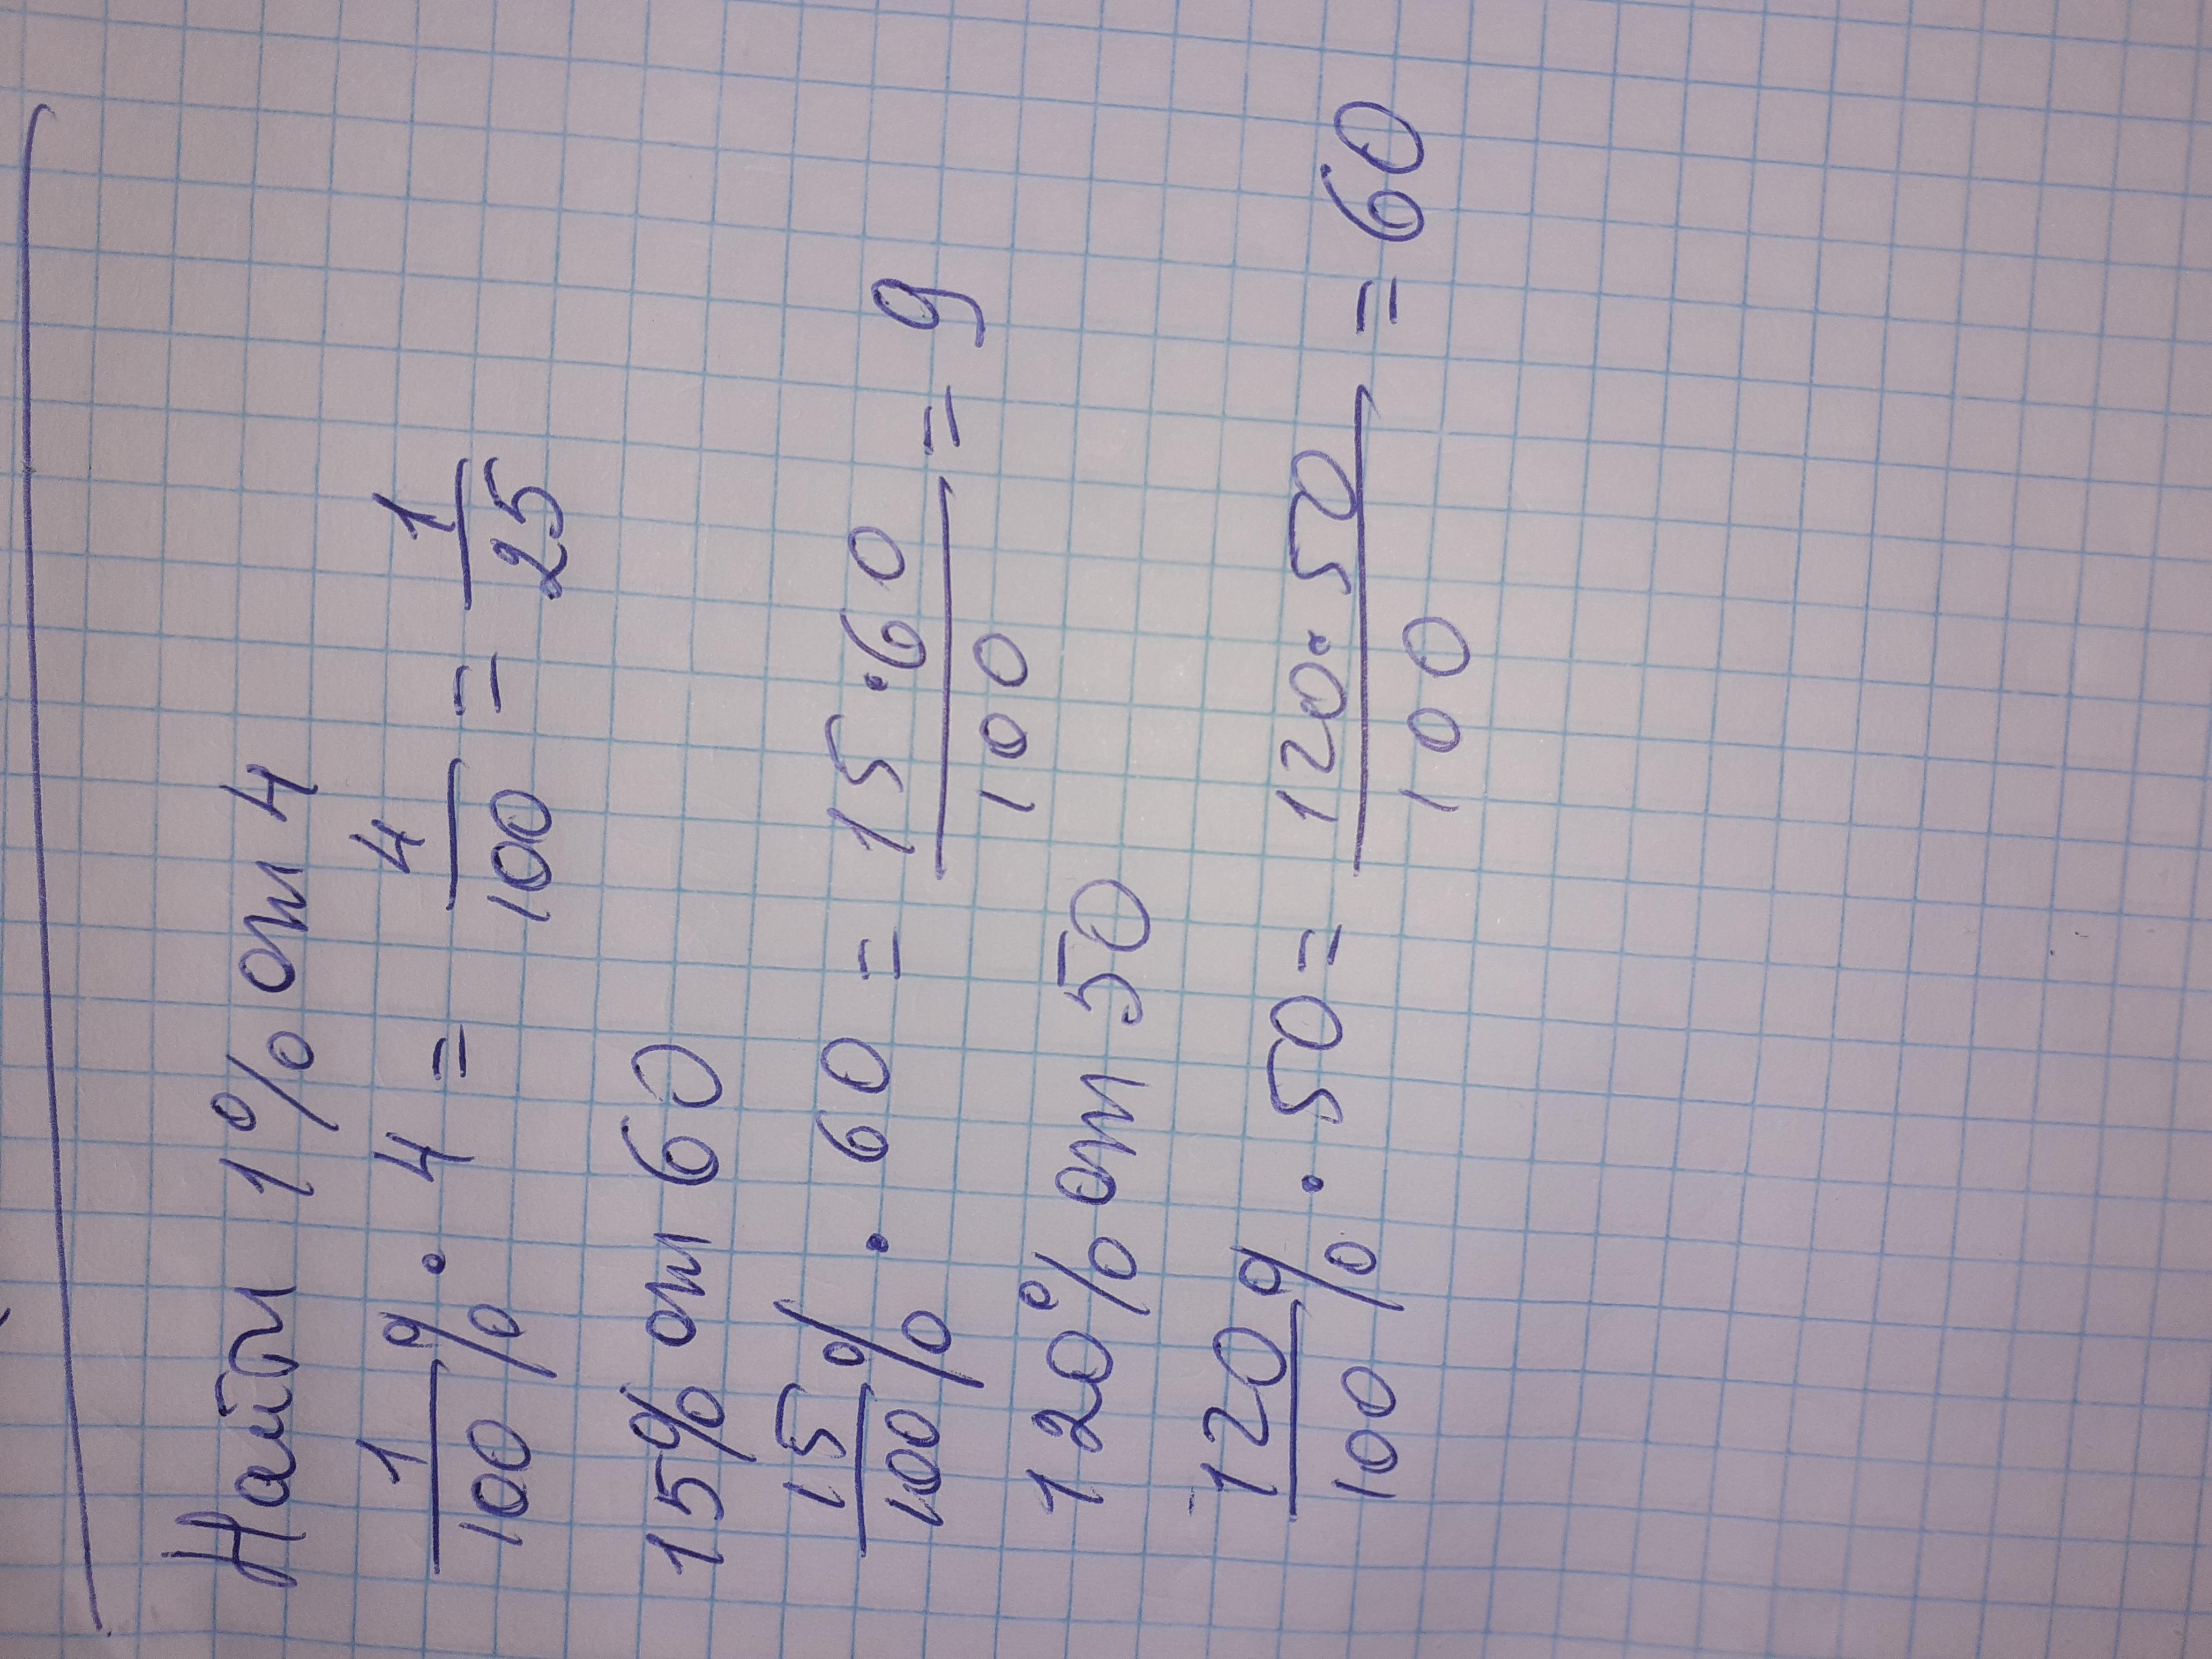 Найти 1% от 4
1/100 % · 4 = 4/100 = 1/25
15% от 60
15/100 % · 60 = 15·60/100 = 9
120% от 50
120/100 % · 50 = 120·50/100 = 60